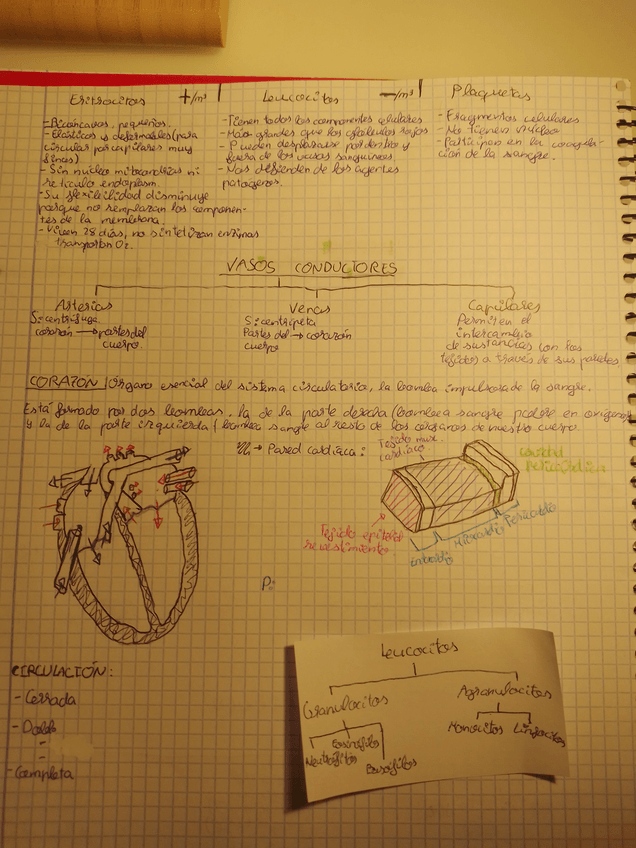 Eritrocitos +/m³ Leucocitos -/m³ Plaquetas
- Bicóncavos, pequeños.
- Elásticos y deformables (para
circular por capilares muy
finos)
- Sin núcleo mitocondrias ni
retículo endoplasm.
- Su flexibilidad disminuye
porque no remplazan los componen-
tes de la membrana.
- Viven 28 días, no sintetizan enzimas
transportan O₂.
- Tienen todos los componentes celulares
- Más grandes que los glóbulos rojos
- Pueden desplazarse por dentro y
fuera de los vasos sanguíneos.
- Nos defienden de los agentes
patógenos.
- Fragmentos celulares
- No tienen núcleo
- Participan en la coagula-
ción de la sangre.
VASOS CONDUCTORES
Arterias
S: centrífuga
corazón → partes del
cuerpo.
Venas
S: centrípeta
Partes del → corazón
cuerpo
Capilares
Permiten el
intercambio
de sustancias con los
tejidos a través de sus paredes
CORAZÓN Órgano esencial del sistema circulatorio, la bomba impulsora de la sangre.
Está formado por dos bombas, la de la parte derecha (bombea sangre pobre en oxígeno)
y la de la parte izquierda (bombea sangre al resto de los órganos de nuestro cuerpo.
→ Pared cardíaca:
Tejido musc.
cardíaco
cavidad
pericárdica
Tejido epitelial
revestimiento
Endocardio
Miocardio
Pericardio
P:
CIRCULACIÓN:
- Cerrada
- Doble
-
-
- Completa
Leucocitos
Granulocitos
Agranulocitos
Neutrófilos
Eosinófilos
Basófilos
Monocitos
Linfocitos